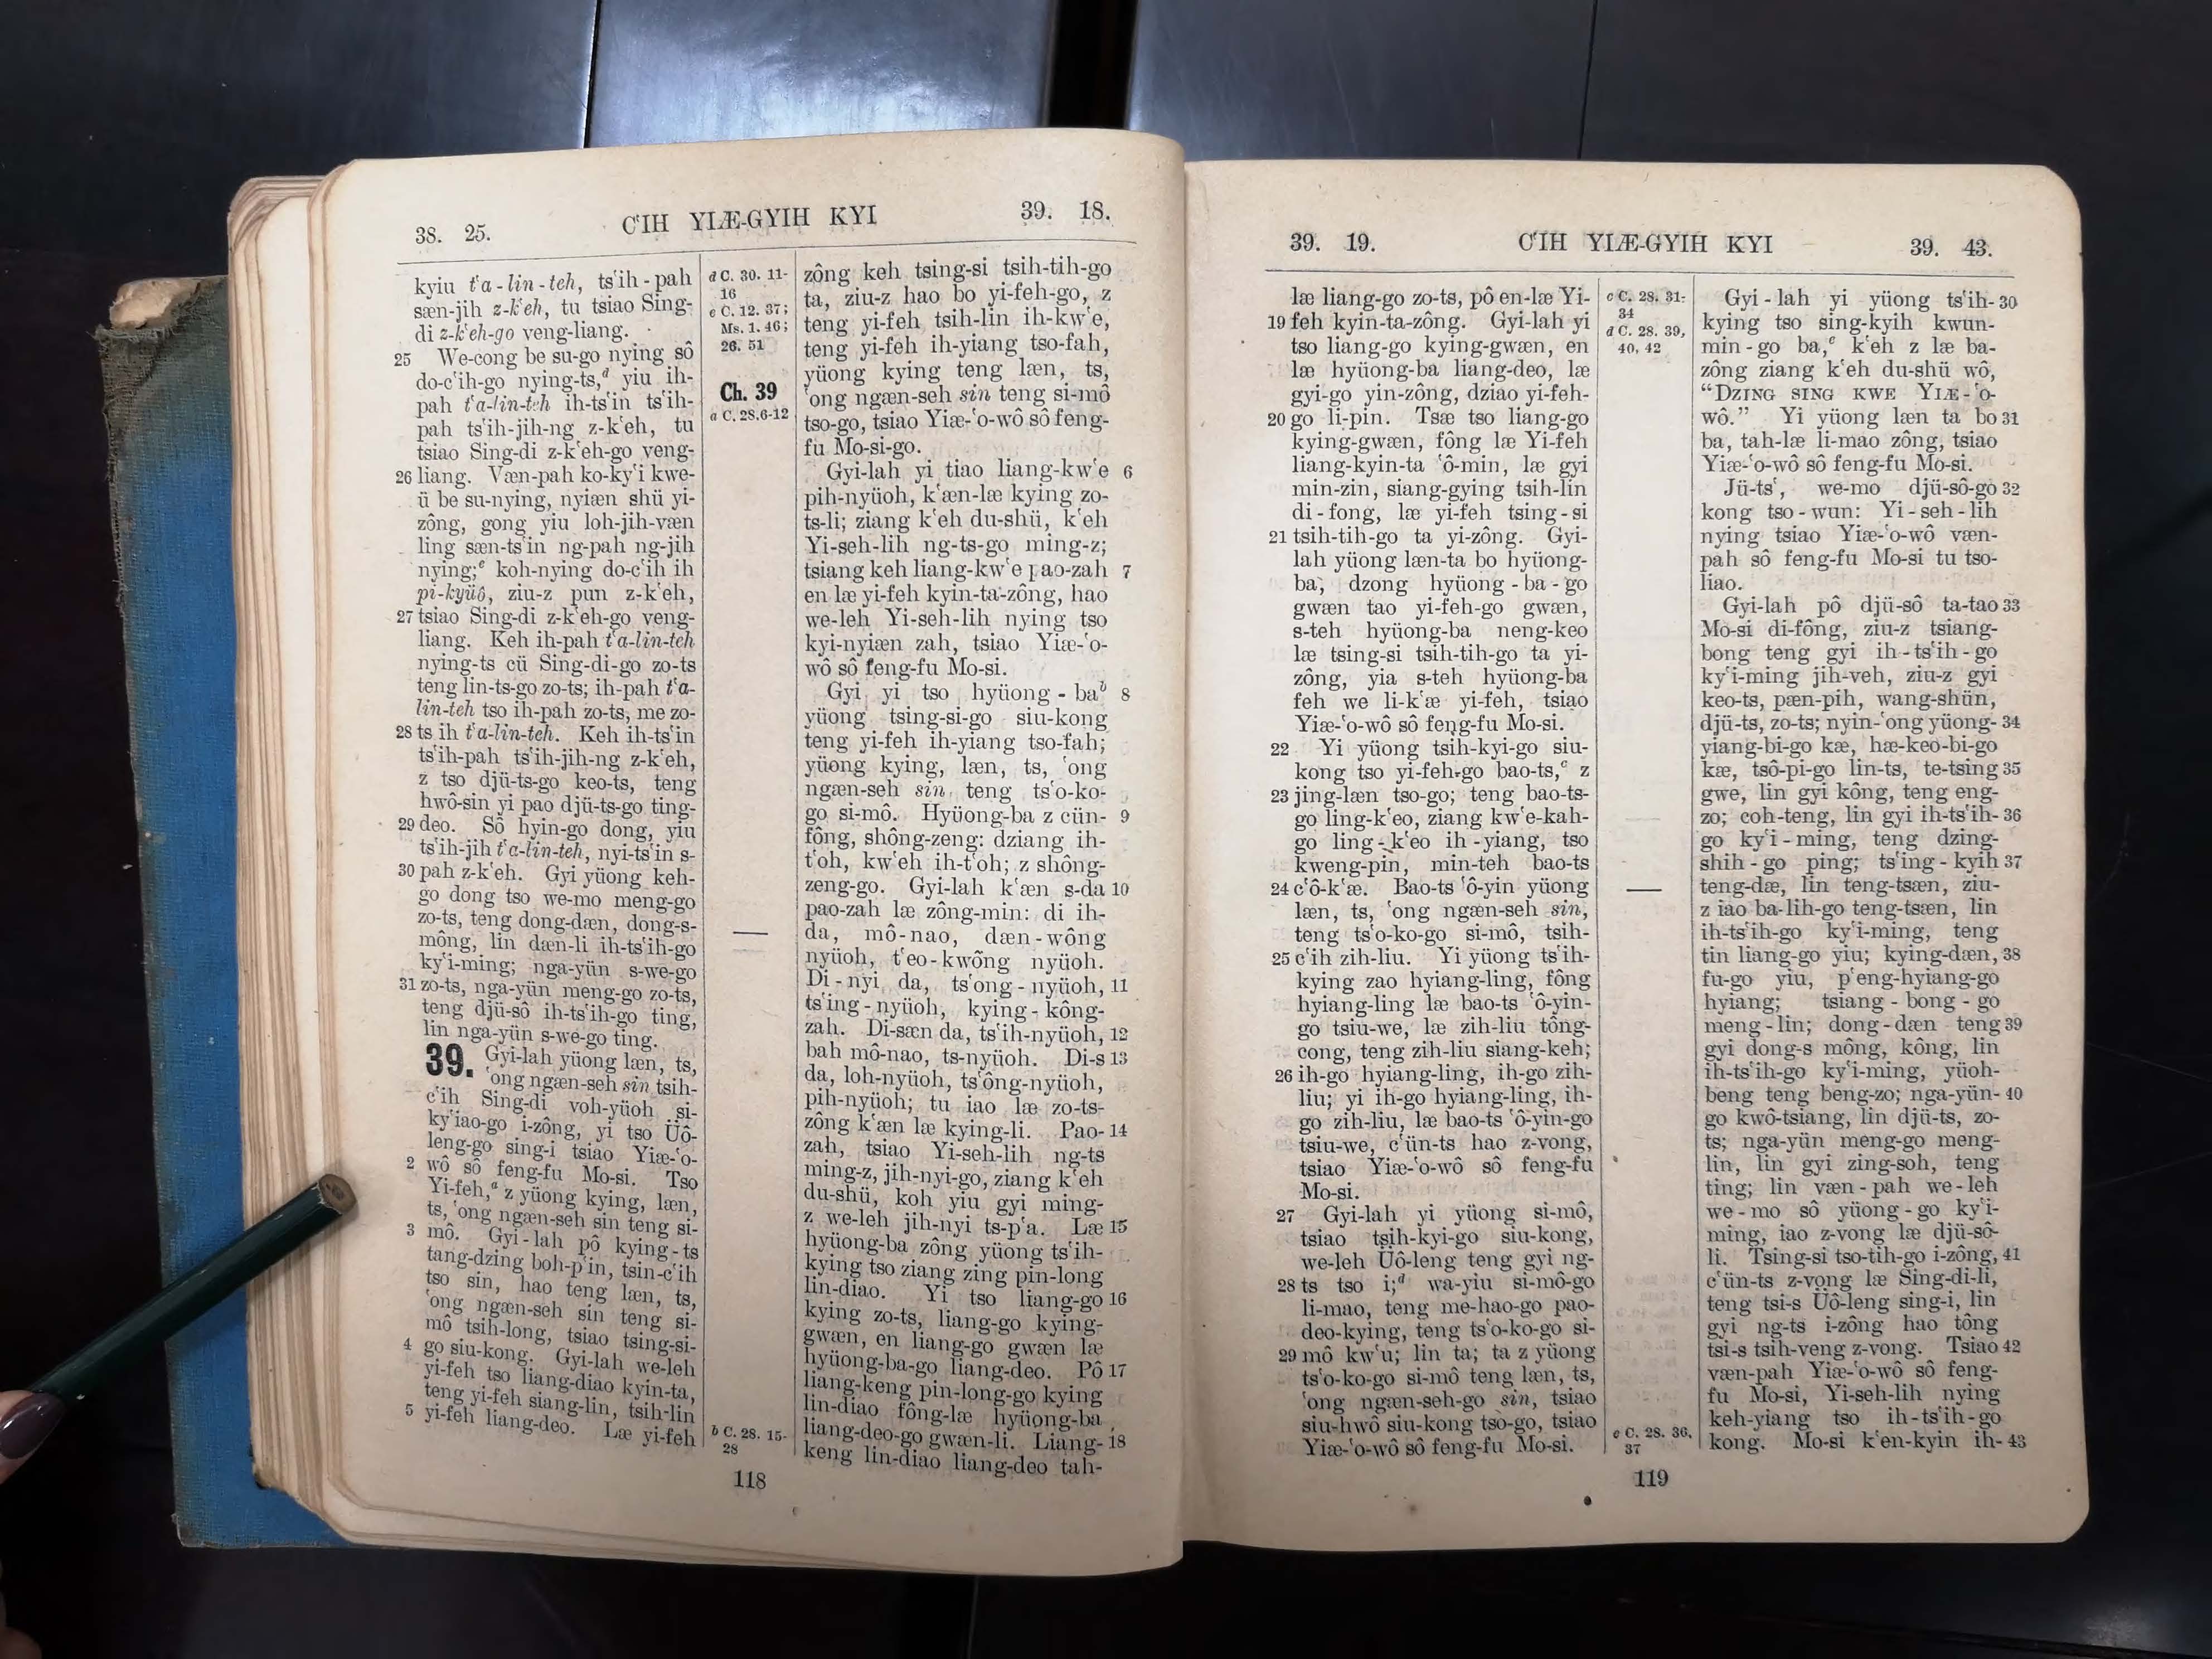 38. 25.
CʻIH YIÆ-GYIH KYI
39. 18.
kyiu tʻa-lin-teh, tsʻih-pah
sæn-jih z-kʻeh, tu tsiao Sing-
di z-kʻeh-go veng-liang.
25 We-cong be su-go nying sô
do-cʻih-go nying-ts,ᵈ yiu ih-
pah tʻa-lin-teh ih-tsʻin tsʻih-
pah tsʻih-jih-ng z-kʻeh, tu
tsiao Sing-di z-kʻeh-go veng-
26 liang. Væn-pah ko-kyʻi kwe-
ü be su-nying, nyiæn shü yi-
zông, gong yiu loh-jih-væn
ling sæn-tsʻin ng-pah ng-jih
nying;ᵉ koh-nying do-cʻih ih
pi-kyüô, ziu-z pun z-kʻeh,
27 tsiao Sing-di z-kʻeh-go veng-
liang. Keh ih-pah tʻa-lin-teh
nying-ts cü Sing-di-go zo-ts
teng lin-ts-go zo-ts; ih-pah tʻa-
lin-teh tso ih-pah zo-ts, me zo-
28 ts ih tʻa-lin-teh. Keh ih-tsʻin
tsʻih-pah tsʻih-jih-ng z-kʻeh,
z tso djü-ts-go keo-ts, teng
hwô-sin yi pao djü-ts-go ting-
29 deo. Sô hyin-go dong, yiu
tsʻih-jih tʻa-lin-teh, nyi-tsʻin s-
30 pah z-kʻeh. Gyi yüong keh-
go dong tso we-mo meng-go
zo-ts, teng dong-dæn, dong-s-
mông, lin dæn-li ih-tsʻih-go
kyʻi-ming; nga-yün s-we-go
31 zo-ts, nga-yün meng-go zo-ts,
teng djü-sô ih-tsʻih-go ting,
lin nga-yün s-we-go ting.
39. Gyi-lah yüong læn, ts,
ʻong ngæn-seh sin tsih-
cʻih Sing-di voh-yüoh si-
kyʻiao-go i-zông, yi tso Üô-
leng-go sing-i tsiao Yiæ-ʻo-
2 wô sô feng-fu Mo-si. Tso
Yi-feh,ᵃ z yüong kying, læn,
ts, ʻong ngæn-seh sin teng si-
3 mô. Gyi-lah pô kying-ts
tang-dzing boh-pʻin, tsin-cʻih
tso sin, hao teng læn, ts,
ʻong ngæn-seh sin teng si-
mô tsih-long, tsiao tsing-si-
4 go siu-kong. Gyi-lah we-leh
yi-feh tso liang-diao kyin-ta,
teng yi-feh siang-lin, tsih-lin
5 yi-feh liang-deo. Læ yi-feh
d C. 30. 11-
16
e C. 12. 37;
Ms. 1. 46;
26. 51
Ch. 39
a C. 28.6-12
b C. 28. 15-
28
zông keh tsing-si tsih-tih-go
ta, ziu-z hao bo yi-feh-go, z
teng yi-feh tsih-lin ih-kwʻe,
teng yi-feh ih-yiang tso-fah,
yüong kying teng læn, ts,
ʻong ngæn-seh sin teng si-mô
tso-go, tsiao Yiæ-ʻo-wô sô feng-
fu Mo-si-go.
Gyi-lah yi tiao liang-kwʻe 6
pih-nyüoh, kʻæn-læ kying zo-
ts-li; ziang kʻeh du-shü, kʻeh
Yi-seh-lih ng-ts-go ming-z;
tsiang keh liang-kwʻe pao-zah 7
en læ yi-feh kyin-ta-zông, hao
we-leh Yi-seh-lih nying tso
kyi-nyiæn zah, tsiao Yiæ-ʻo-
wô sô feng-fu Mo-si.
Gyi yi tso hyüong-baᵇ 8
yüong tsing-si-go siu-kong
teng yi-feh ih-yiang tso-fah;
yüong kying, læn, ts, ʻong
ngæn-seh sin, teng tsʻo-ko-
go si-mô. Hyüong-ba z cün- 9
fông, shông-zeng: dziang ih-
tʻoh, kwʻeh ih-tʻoh; z shông-
zeng-go. Gyi-lah kʻæn s-da 10
pao-zah læ zông-min: di ih-
da, mô-nao, dæn-wông
nyüoh, tʻeo-kwông nyüoh.
Di-nyi da, tsʻong-nyüoh, 11
tsʻing-nyüoh, kying-kông-
zah. Di-sæn da, tsʻih-nyüoh, 12
bah mô-nao, ts-nyüoh. Di-s 13
da, loh-nyüoh, tsʻông-nyüoh,
pih-nyüoh; tu iao læ zo-ts-
zông kʻæn læ kying-li. Pao- 14
zah, tsiao Yi-seh-lih ng-ts
ming-z, jih-nyi-go, ziang kʻeh
du-shü, koh yiu gyi ming-
z we-leh jih-nyi ts-pʻa. Læ 15
hyüong-ba zông yüong tsʻih-
kying tso ziang zing pin-long
lin-diao. Yi tso liang-go 16
kying zo-ts, liang-go kying-
gwæn, en liang-go gwæn læ
hyüong-ba-go liang-deo. Pô 17
liang-keng pin-long-go kying
lin-diao fông-læ hyüong-ba
liang-deo-go gwæn-li. Liang- 18
keng lin-diao liang-deo tah-
118
39. 19.
CʻIH YIÆ-GYIH KYI
39. 43.
læ liang-go zo-ts, pô en-læ Yi-
19 feh kyin-ta-zông. Gyi-lah yi
tso liang-go kying-gwæn, en
læ hyüong-ba liang-deo, læ
gyi-go yin-zông, dziao yi-feh-
20 go li-pin. Tsæ tso liang-go
kying-gwæn, fông læ Yi-feh
liang-kyin-ta ʻô-min, læ gyi
min-zin, siang-gying tsih-lin
di-fong, læ yi-feh tsing-si
21 tsih-tih-go ta yi-zông. Gyi-
lah yüong læn-ta bo hyüong-
ba, dzong hyüong-ba-go
gwæn tao yi-feh-go gwæn,
s-teh hyüong-ba neng-keo
læ tsing-si tsih-tih-go ta yi-
zông, yia s-teh hyüong-ba
feh we li-kʻæ yi-feh, tsiao
Yiæ-ʻo-wô sô feng-fu Mo-si.
22 Yi yüong tsih-kyi-go siu-
kong tso yi-feh-go bao-ts,ᶜ z
23 jing-læn tso-go; teng bao-ts-
go ling-kʻeo, ziang kwʻe-kah-
go ling-kʻeo ih-yiang, tso
kweng-pin, min-teh bao-ts
24 cʻô-kʻæ. Bao-ts ʻô-yin yüong
læn, ts, ʻong ngæn-seh sin,
teng tsʻo-ko-go si-mô, tsih-
25 cʻih zih-liu. Yi yüong tsʻih-
kying zao hyiang-ling, fông
hyiang-ling læ bao-ts ʻô-yin-
go tsiu-we, læ zih-liu tông-
cong, teng zih-liu siang-keh;
26 ih-go hyiang-ling, ih-go zih-
liu; yi ih-go hyiang-ling, ih-
go zih-liu, læ bao-ts ʻô-yin-go
tsiu-we, cʻün-ts hao z-vong,
tsiao Yiæ-ʻo-wô sô feng-fu
Mo-si.
27 Gyi-lah yi yüong si-mô,
tsiao tsih-kyi-go siu-kong,
we-leh Üô-leng teng gyi ng-
28 ts tso i;ᵈ wa-yiu si-mô-go
li-mao, teng me-hao-go pao-
deo-kying, teng tsʻo-ko-go si-
29 mô kwʻu; lin ta; ta z yüong
tsʻo-ko-go si-mô teng læn, ts,
ʻong ngæn-seh-go sin, tsiao
siu-hwô siu-kong tso-go, tsiao
Yiæ-ʻo-wô sô feng-fu Mo-si.
c C. 28. 31-
34
d C. 28. 39,
40, 42
e C. 28. 36,
37
Gyi-lah yi yüong tsʻih- 30
kying tso sing-kyih kwun-
min-go ba,ᵉ kʻeh z læ ba-
zông ziang kʻeh du-shü wô,
“DZING SING KWE YIÆ-ʻO-
WÔ.” Yi yüong læn ta bo 31
ba, tah-læ li-mao zông, tsiao
Yiæ-ʻo-wô sô feng-fu Mo-si.
Jü-tsʻ, we-mo djü-sô-go 32
kong tso-wun: Yi-seh-lih
nying tsiao Yiæ-ʻo-wô væn-
pah sô feng-fu Mo-si tu tso-
liao.
Gyi-lah pô djü-sô ta-tao 33
Mo-si di-fông, ziu-z tsiang-
bong teng gyi ih-tsʻih-go
kyʻi-ming jih-veh, ziu-z gyi
keo-ts, pæn-pih, wang-shün,
djü-ts, zo-ts; nyin-ʻong yüong- 34
yiang-bi-go kæ, hæ-keo-bi-go
kæ, tsô-pi-go lin-ts, te-tsing 35
gwe, lin gyi kông, teng eng-
zo; coh-teng, lin gyi ih-tsʻih- 36
go kyʻi-ming, teng dzing-
shih-go ping; tsʻing-kyih 37
teng-dæ, lin teng-tsæn, ziu-
z iao ba-lih-go teng-tsæn, lin
ih-tsʻih-go kyʻi-ming, teng
tin liang-go yiu; kying-dæn, 38
fu-go yiu, pʻeng-hyiang-go
hyiang; tsiang-bong-go
meng-lin; dong-dæn teng 39
gyi dong-s mông, kông, lin
ih-tsʻih-go kyʻi-ming, yüoh-
beng teng beng-zo; nga-yün- 40
go kwô-tsiang, lin djü-ts, zo-
ts; nga-yün meng-go meng-
lin, lin gyi zing-soh, teng
ting; lin væn-pah we-leh
we-mo sô yüong-go kyʻi-
ming, iao z-vong læ djü-sô-
li. Tsing-si tso-tih-go i-zông, 41
cʻün-ts z-vong læ Sing-di-li,
teng tsi-s Üô-leng sing-i, lin
gyi ng-ts i-zông hao tông
tsi-s tsih-veng z-vong. Tsiao 42
væn-pah Yiæ-ʻo-wô sô feng-
fu Mo-si, Yi-seh-lih nying
keh-yiang tso ih-tsʻih-go
kong. Mo-si kʻen-kyin ih- 43
119